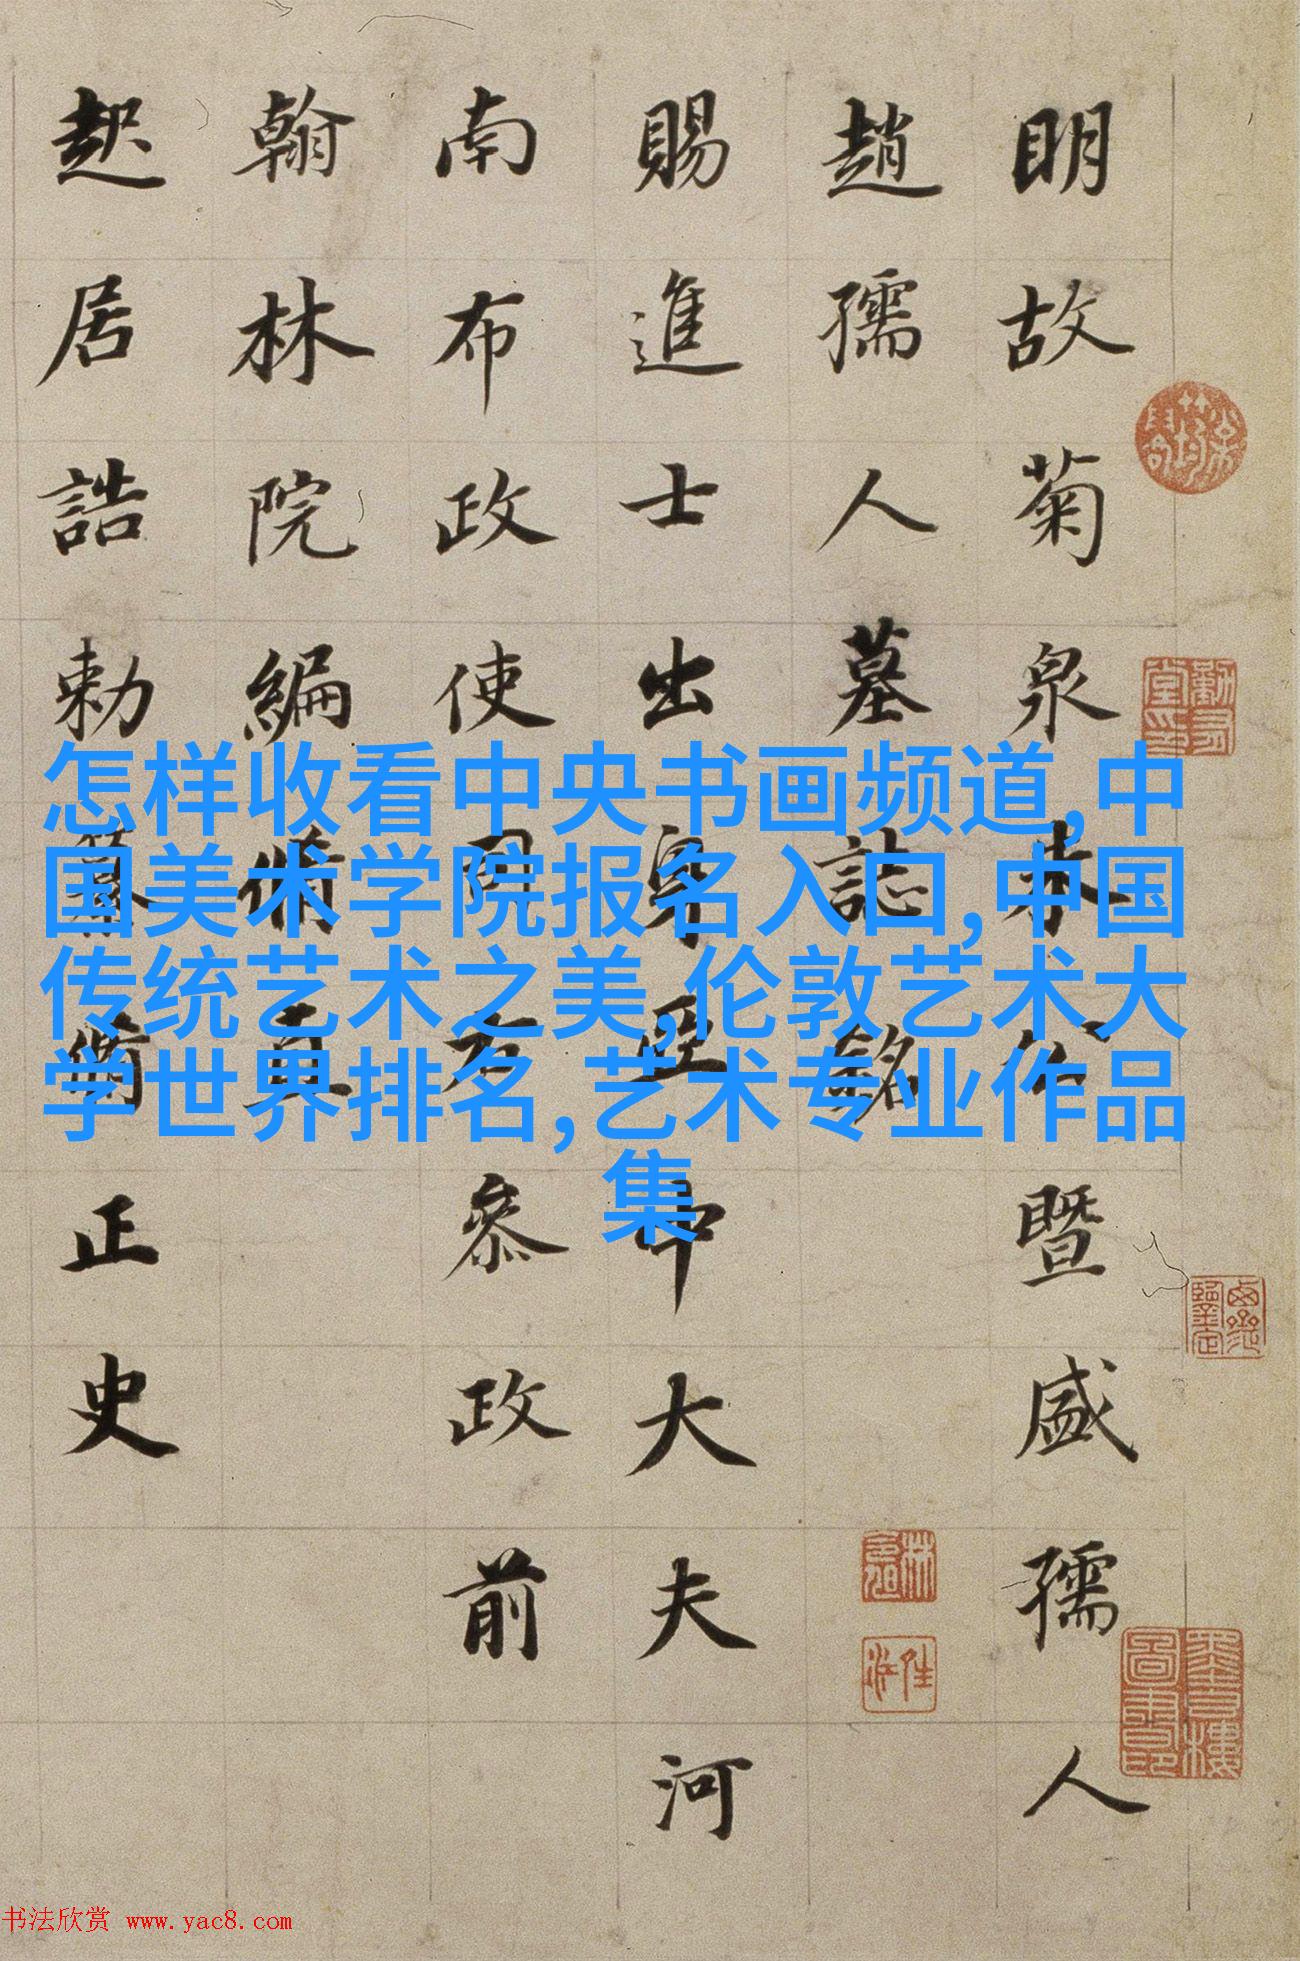 明故菊泉公暨盛孺人
趙孺人墓誌銘
賜進士出身亞中大夫河
南布政使司右叅政前
翰林院編脩直
起居誥勅纂脩正史
怎样收看中央书画频道,中
国美术学院报名入口,中国
传统艺术之美,伦敦艺术大
学世界排名,艺术专业作品
集
书法欣赏 www.yac8.com